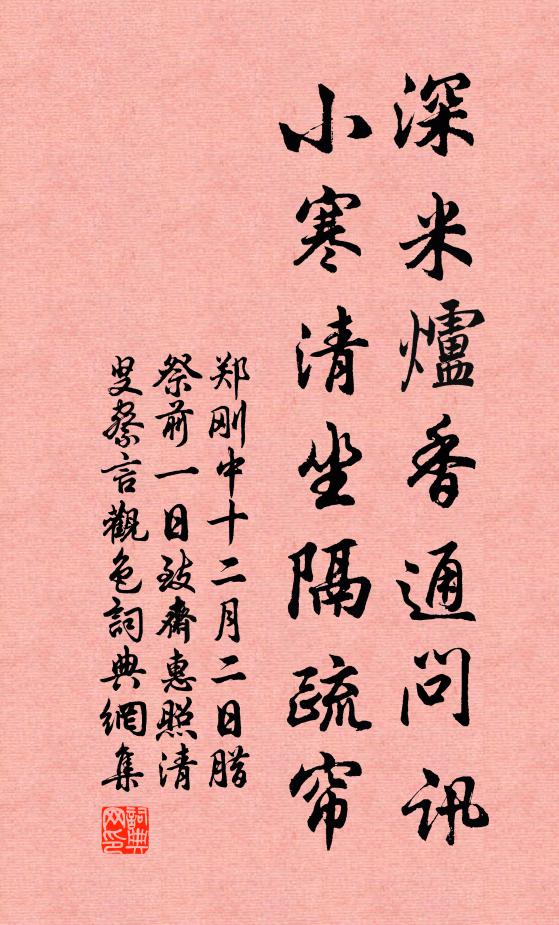 深米爐香通問訊
小寒清坐隔疏帘
郑刚中十二月二日腊
祭前一日致齋惠照清
叟察言觀色詞典網集
詞典
网印